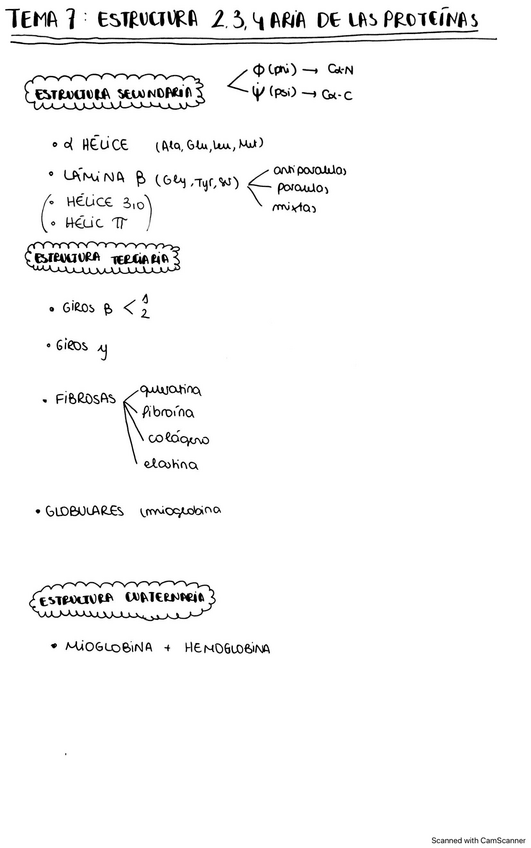 TEMA 7: ESTRUCTURA 2,3,4 ARIA DE LAS PROTEÍNAS
ESTRUCTURA SECUNDARIA
Φ (phi) → Cα-N
Ψ (psi) → Cα-C
• α HÉLICE (Ala, Glu, Leu, Met)
• LÁMINA β (Gly, Tyr, Ser)
antiparalelas
paralelas
mixtas
(• HÉLICE 3,0
• HÉLIC π)
ESTRUCTURA TERCIARIA
• GIROS β < 1
2
• GIROS γ
• FIBROSAS
queratina
fibroína
colágeno
elastina
• GLOBULARES (mioglobina
ESTRUCTURA CUATERNARIA
• MIOGLOBINA + HEMOGLOBINA
Scanned with CamScanner